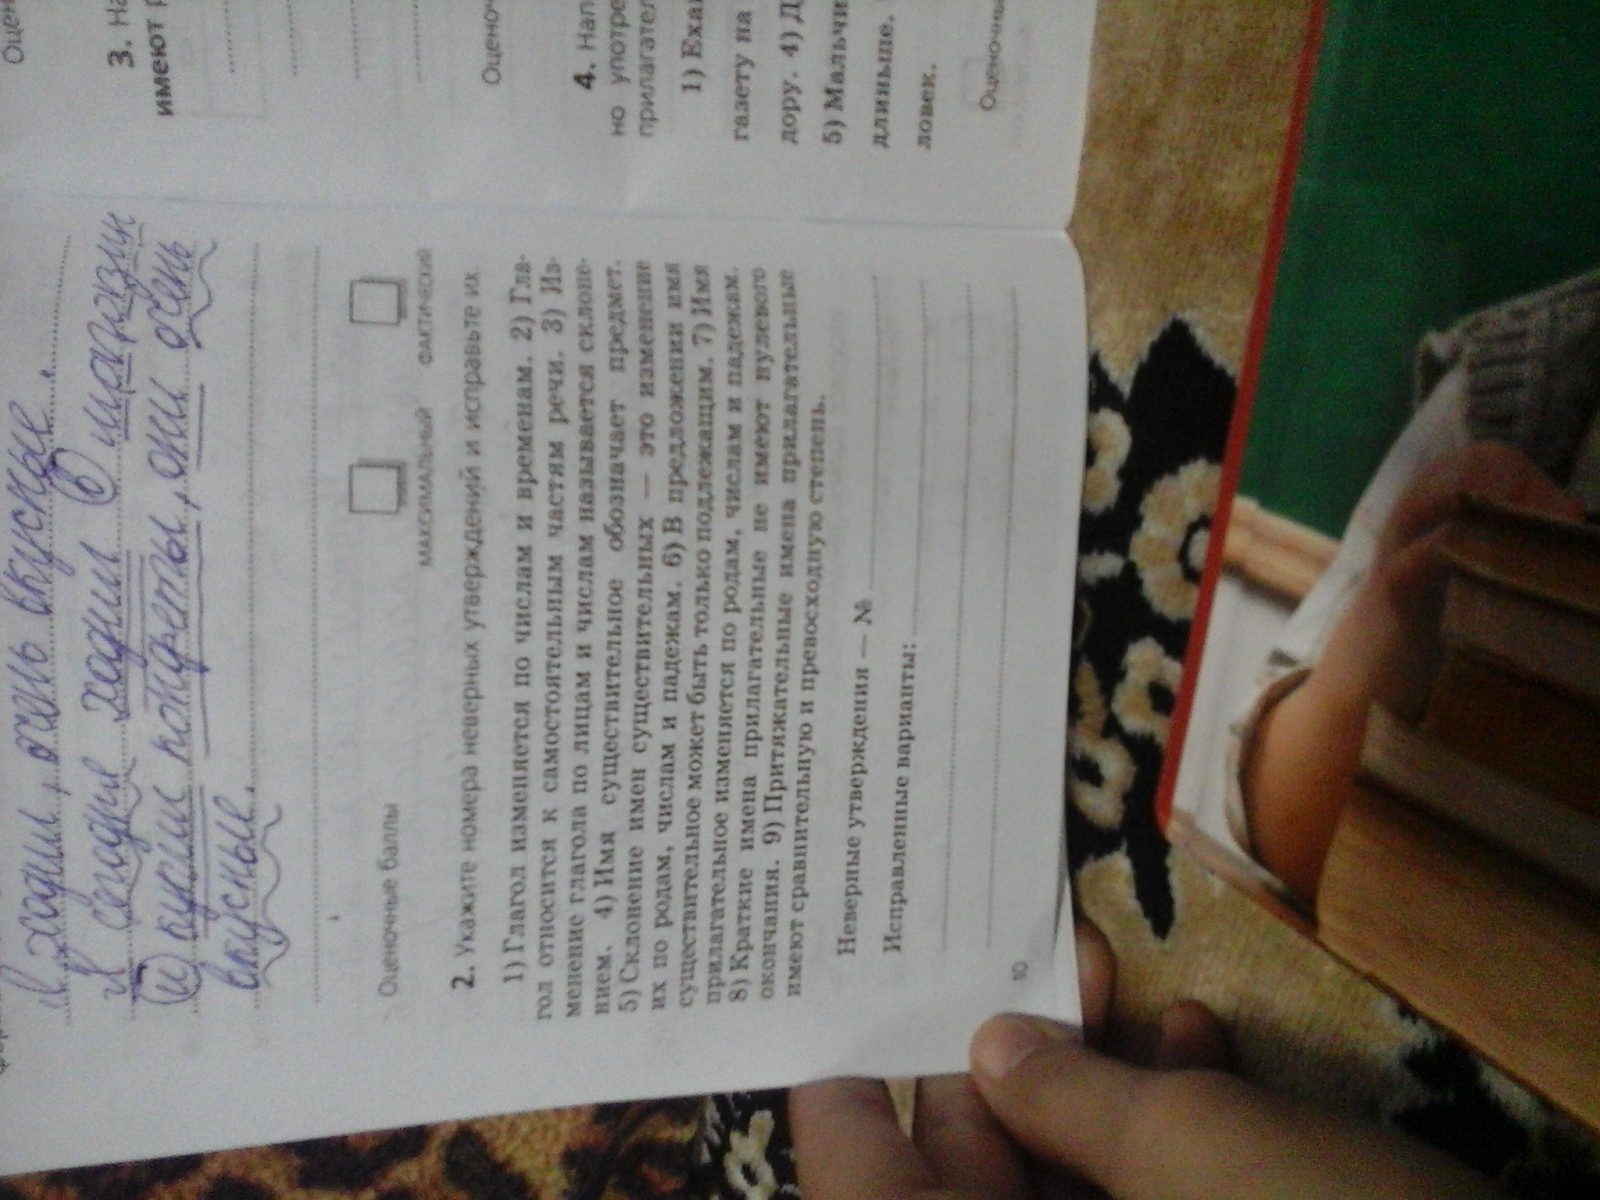 ходил, очень вкусные.
Я сегодня ходил в магазин
и купил конфеты, они очень
вкусные.
Оценочные баллы
МАКСИМАЛЬНЫЙ ФАКТИЧЕСКИЙ
2. Укажите номера неверных утверждений и исправьте их.
1) Глагол изменяется по числам и временам. 2) Гла-
гол относится к самостоятельным частям речи. 3) Из-
менение глагола по лицам и числам называется склоне-
нием. 4) Имя существительное обозначает предмет.
5) Склонение имен существительных — это изменение
их по родам, числам и падежам. 6) В предложении имя
существительное может быть только подлежащим. 7) Имя
прилагательное изменяется по родам, числам и падежам.
8) Краткие имена прилагательные не имеют нулевого
окончания. 9) Притяжательные имена прилагательные
имеют сравнительную и превосходную степень.
Неверные утверждения — №
Исправленные варианты:
10
3.
имеют
4.
но
1)
газету на
дору. 4) Д
5) Мальчи
длиньше.
ловек.